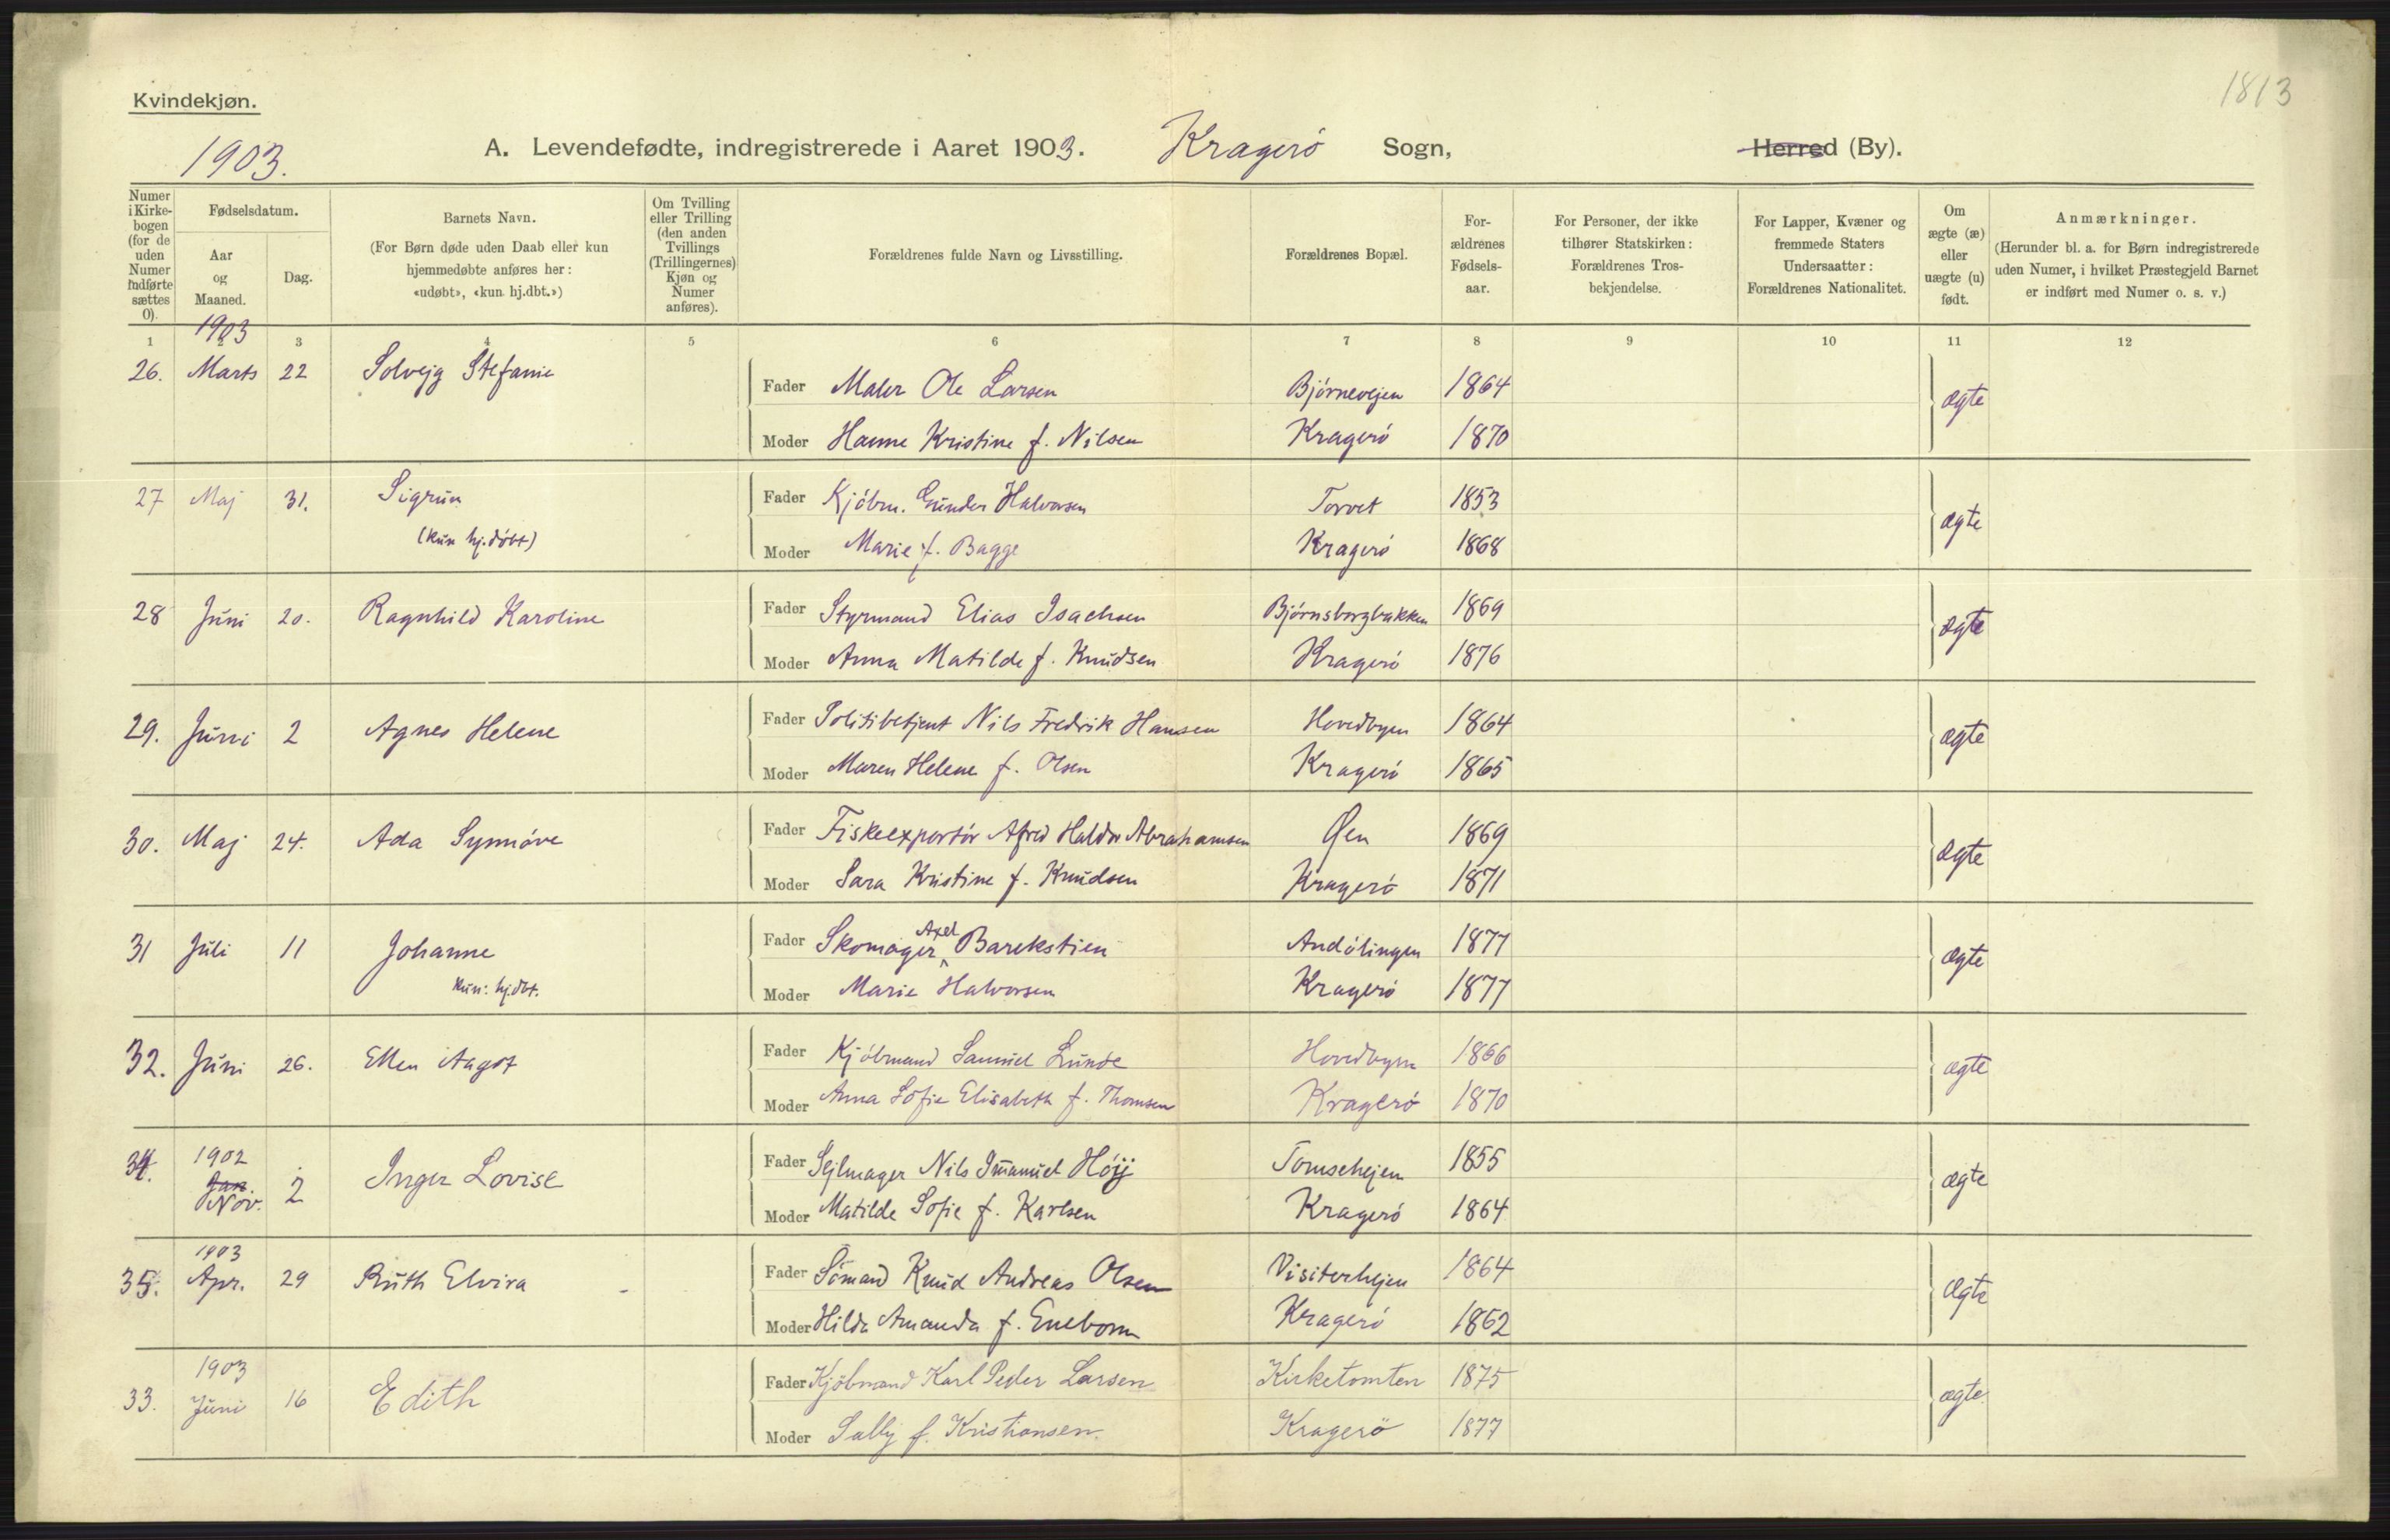 1813
Kvindekjøn.
1903.
A. Levendefødte, indregistrerede i Aaret 1903. Kragerö Sogn, Herred (By).
Numer i Kirkebogen (for de uden Numer indførte sættes 0).
Fødselsdatum.
Aar og Maaned.
Dag.
Barnets Navn.
(For Børn døde uden Daab eller kun hjemmedøbte anføres her: «udøbt», «kun hj.dbt.»)
Om Tvilling eller Trilling (den anden Tvillings (Trillingernes) Kjøn og Numer anføres).
Forældrenes fulde Navn og Livsstilling.
Forældrenes Bopæl.
Forældrenes Fødselsaar.
For Personer, der ikke tilhører Statskirken: Forældrenes Trosbekjendelse.
For Lapper, Kvæner og fremmede Staters Undersaatter: Forældrenes Nationalitet.
Om ægte (æ) eller uægte (u) født.
Anmærkninger.
(Herunder bl. a. for Børn indregistrerede uden Numer, i hvilket Præstegjeld Barnet er indført med Numer o. s. v.)
1903
1 2 3 4 5 6 7 8 9 10 11 12
26. Marts 22 Solvejg Stefanie Fader Maler Ole Larsen Bjørnevejen 1864 ægte
Moder Hanne Kristine f. Nilsen Kragerö 1870
27 Maj 31. Sigrun Fader Kjöbm. Gunder Halvorsen Torvet 1853 ægte
(kun hj.döbt) Moder Marie f. Bagge Kragerö 1868
28 Juni 20. Ragnhild Karoline Fader Styrmand Elias Isachsen Bjørnsborgbakken 1869 ægte
Moder Anna Matilde f. Knudsen Kragerö 1876
29. Juni 2 Agnes Helene Fader Politibetjent Nils Fredrik Hansen Hovedbyen 1864 ægte
Moder Maren Helene f. Olsen Kragerö 1865
30. Maj 24. Ada Synnöve Fader Fiskeexportör Alfred Haldor Abrahamsen Øen 1869 ægte
Moder Sara Kristine f. Knudsen Kragerö 1871
31 Juli 11 Johanne Fader Skomager Axel Barekstien Andölingen 1877 ægte
kun: hj.dbt. Moder Marie Halvorsen Kragerö 1877
32. Juni 26. Ellen Aagot Fader Kjöbmand Samuel Lunde Hovedbyen 1866 ægte
Moder Anna Sofie Elisabeth f. Thomsen Kragerö 1870
34. 1902 Jan. Nov. 2 Inger Lovise Fader Sejlmager Nils Imanuel Höij Tomsehejen 1855 ægte
Moder Matilde Sofie f. Karlsen Kragerö 1864
35. 1903 Apr. 29 Ruth Elvira Fader Sömand Knud Andreas Olsen Visiterhejen 1864 ægte
Moder Hilda Amanda f. Enebom Kragerö 1862
33. 1903 Juni 16 Edith Fader Kjöbmand Karl Peder Larsen Kirketomten 1875 ægte
Moder Sally f. Kristiansen. Kragerö 1877